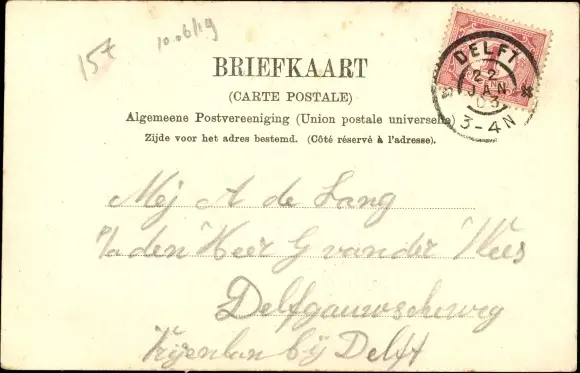 15,-
10.06/19
BRIEFKAART
(CARTE POSTALE)
Algemeene Postvereeniging (Union postale universelle)
Zijde voor het adres bestemd. (Côté réservé à l'adresse).
DELFT
22
JAN
03
3-4N
Mej A de Lang
p/a den Heer G van der Wees
Delfgauwscheweg
Vrijenban bij Delft